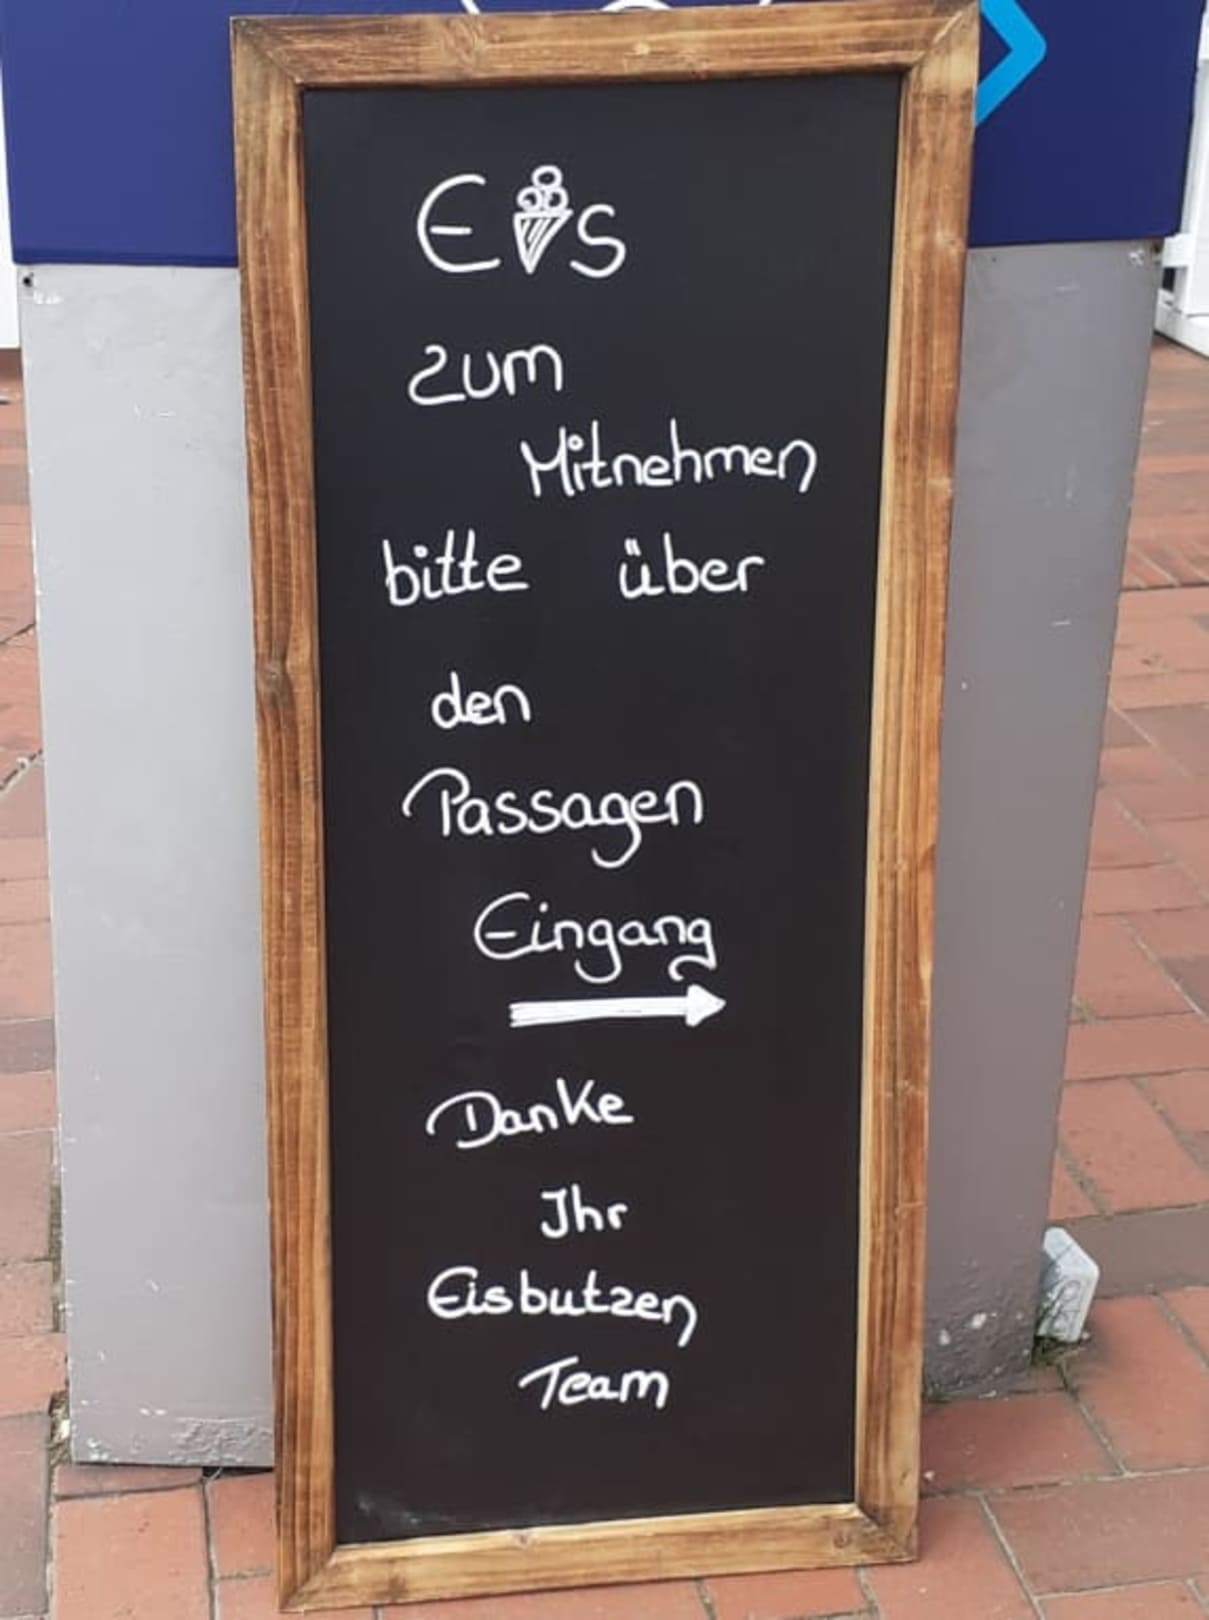 Eis
zum
Mitnehmen
bitte über
den
Passagen
Eingang
Danke
Ihr
Eisbutzen
Team